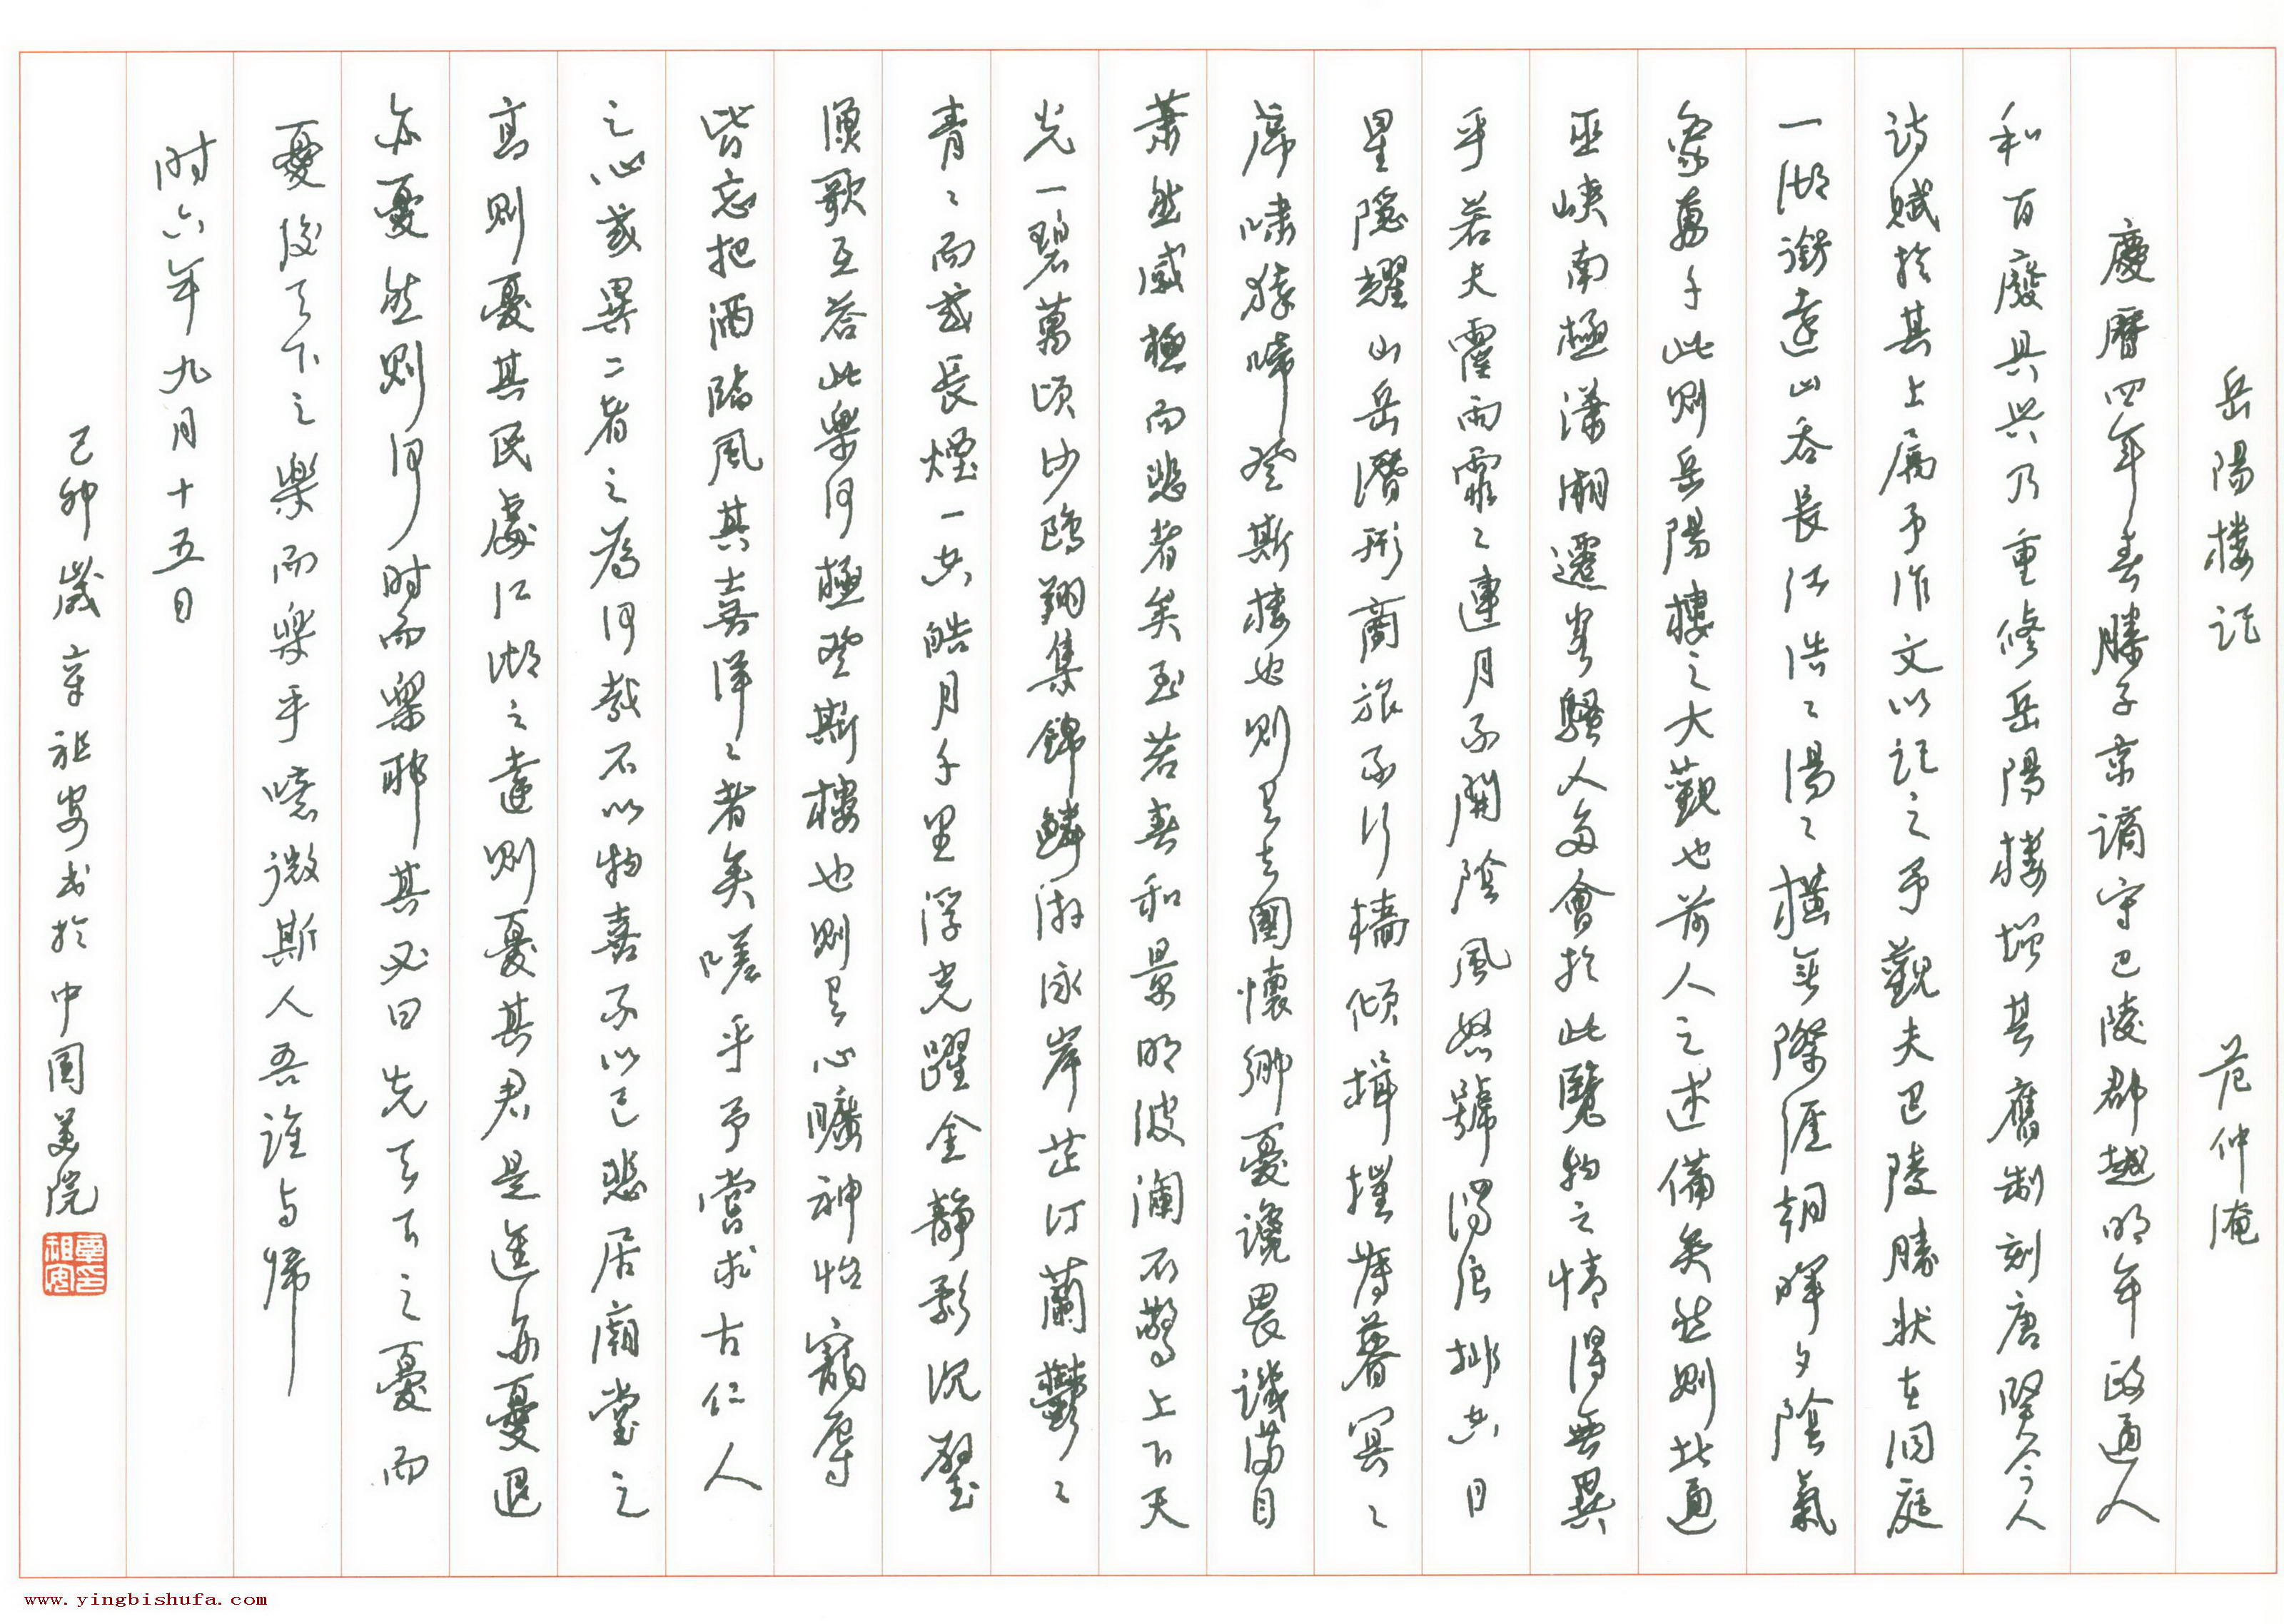 岳陽楼记 范仲淹
慶曆四年春滕子京謫守巴陵郡越明年政通人
和百廢具興乃重修岳陽楼增其舊制刻唐賢今人
詩賦於其上属予作文以記之予觀夫巴陵勝狀在洞庭
一湖銜遠山吞長江浩〻湯〻橫無際涯朝暉夕陰氣
象萬千此則岳陽樓之大觀也前人之述備矣然則北通
巫峽南極瀟湘遷客騷人多會於此覽物之情得無異
乎若夫霪雨霏〻連月不開陰風怒號濁浪排空日
星隱耀山岳潛形商旅不行檣傾楫摧薄暮冥〻
虎嘯猿啼登斯樓也則有去國懷鄉憂讒畏譏滿目
蕭然感極而悲者矣至若春和景明波瀾不驚上下天
光一碧萬頃沙鷗翔集錦鱗游泳岸芷汀蘭鬱〻
青〻而或長煙一空皓月千里浮光躍金靜影沉璧
漁歌互答此樂何極登斯樓也則有心曠神怡寵辱
皆忘把酒臨風其喜洋〻者矣嗟乎予嘗求古仁人
之心或異二者之為何哉不以物喜不以己悲居廟堂之
高則憂其民處江湖之遠則憂其君是進亦憂退
亦憂然則何时而樂耶其必曰先天下之憂而
憂後天下之樂而樂乎噫微斯人吾誰与歸
时六年九月十五日
己卯歲章祖安书於中国美院
www.yingbishufa.com